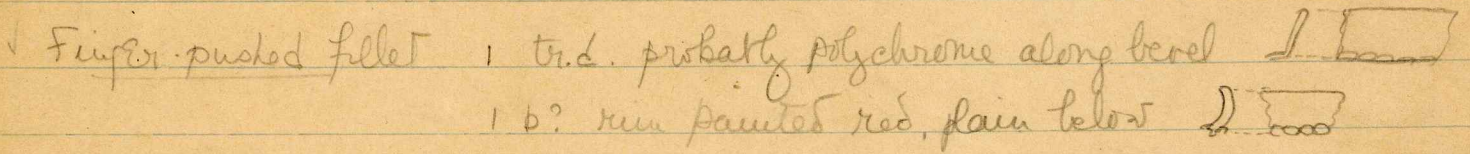 ✓ Finger-pushed fillet 1 tr.d. probably polychrome along bevel
1 b? rim painted red, plain below